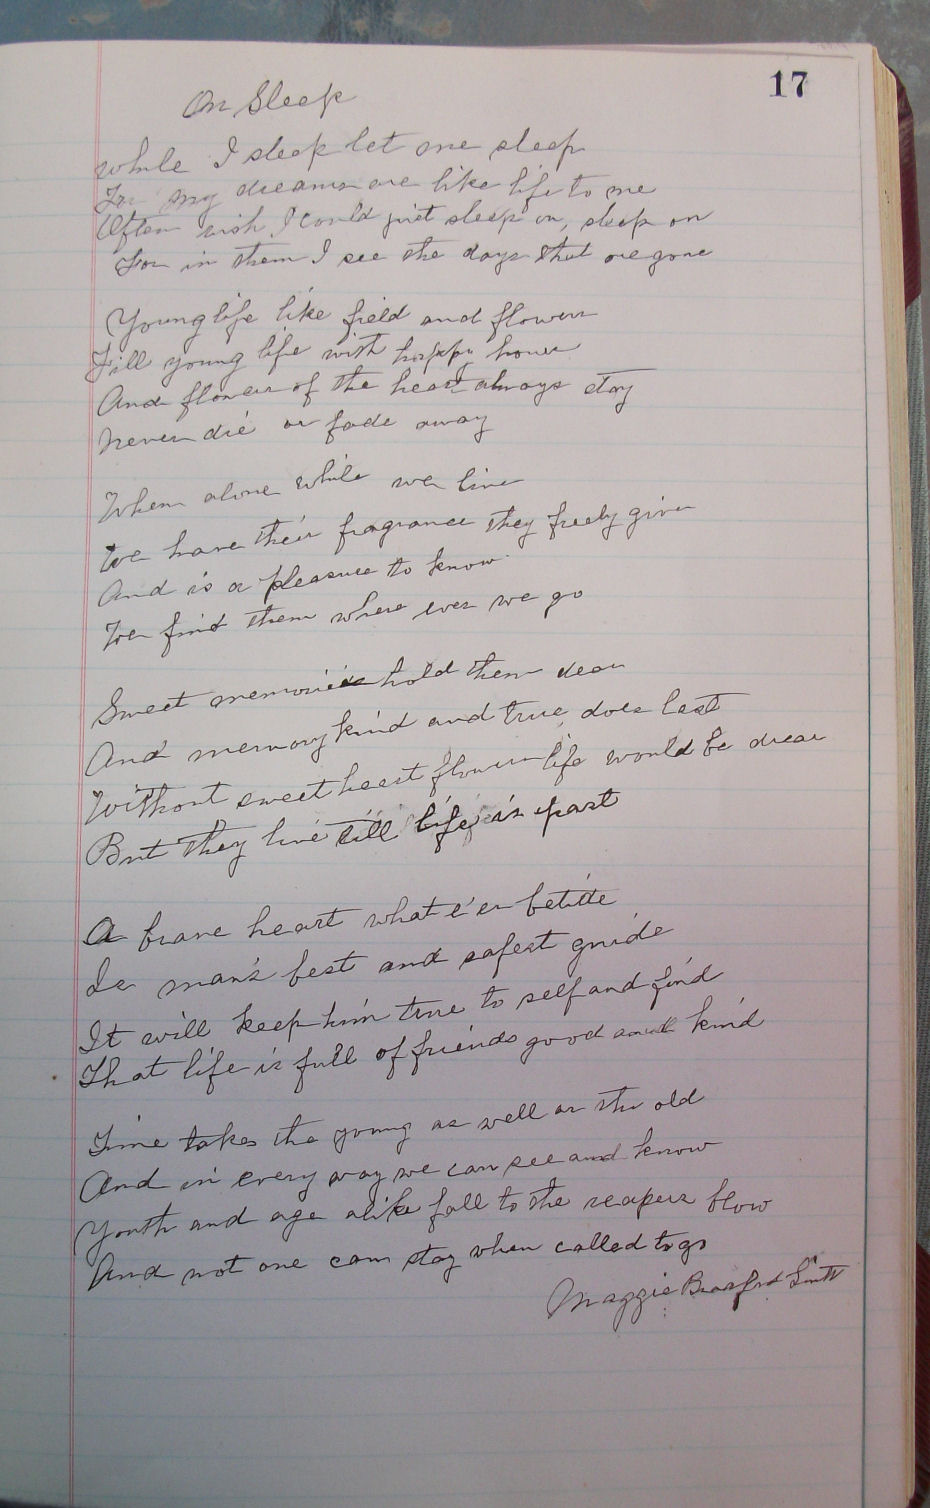 17
On Sleep
while I sleep let me sleep
For my dreams are like life to me
Often wish I could just sleep on, sleep on
For in them I see the days that are gone
Young life like field and flowers
Fill young life with happy hours
And flowers of the heart always stay
Never die or fade away
When alone while we live
We have their fragrance they freely give
And is a pleasure to know
We find them where ever we go
Sweet memories hold them dear
And memory kind and true does last
Without sweet heart flowers life would be drear
But they live till life is past
A brave heart what e'er betide
Is man's best and safest guide
It will keep him true to self and find
That life is full of friends good and kind
Time takes the young as well as the old
And in every way we can see and know
Youth and age alike fall to the reapers blow
And not one can stay when called to go
Maggie Smith